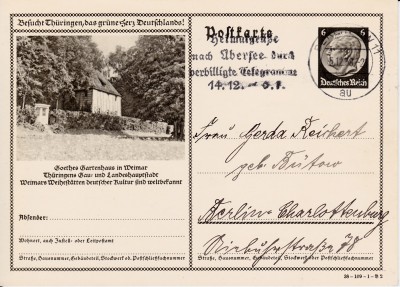 Besucht Thüringen, das grüne Herz Deutschlands!
Postkarte
Heimatgrüße
nach Übersee durch
verbilligte Telegramme
14.12. – 6.1.
6 6
Deutsches Reich
au
Goethes Gartenhaus in Weimar
Thüringens Gau- und Landeshauptstadt
Weimars Weihestätten deutscher Kultur sind weltbekannt
Frau Gerda Reichert
geb. Bütow
Berlin-Charlottenburg
Niebuhrstraße 78
Absender:
Wohnort, auch Zustell- oder Leitpostamt
Straße, Hausnummer, Gebäudeteil, Stockwerk od. Postschließfachnummer
Straße, Hausnummer, Gebäudeteil, Stockwerk od. Postschließfachnummer
38-189-1-B2